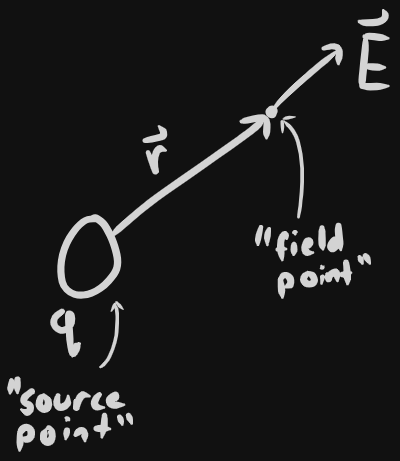 E⃗
r⃗
"field
point"
q
"source
point"